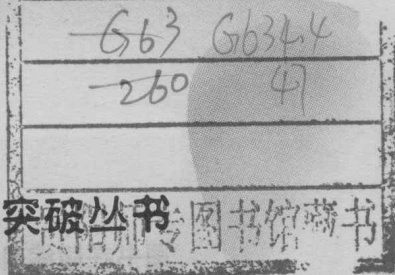 G63 G634.4
260 47
突破丛书
专图书馆藏书